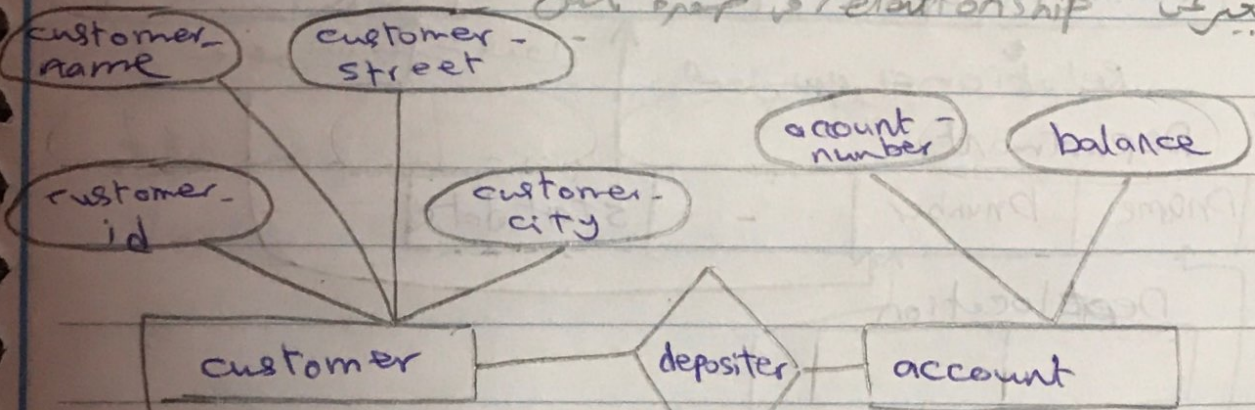 relationship
customer-
name
customer-
street
account-
number
balance
customer-
id
customer-
city
customer
depositer
account